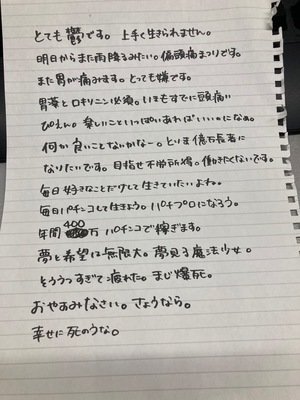 とても鬱です。上手く生きられません。
明日からまた雨降るみたい。偏頭痛まつりです。
また胃が痛みます。とっても嫌です。
胃薬とロキソニン必須。いまもすでに頭痛い
ぴえん。楽しいこといっぱいあればいいのになぁ。
何か良いことないかなー。とりま億万長者に
なりたいです。目指せ不労所得。働きたくないです。
毎日好きなことだけして生きていたいよね。
毎日パチンコして生きよう。パチプロになろう。
年間400万パチンコで稼ぎます。
夢と希望は無限大。夢見る魔法少女。
そううつすぎて疲れた。まじ爆死。
おやすみなさい。さようなら。
幸せに死のうな。